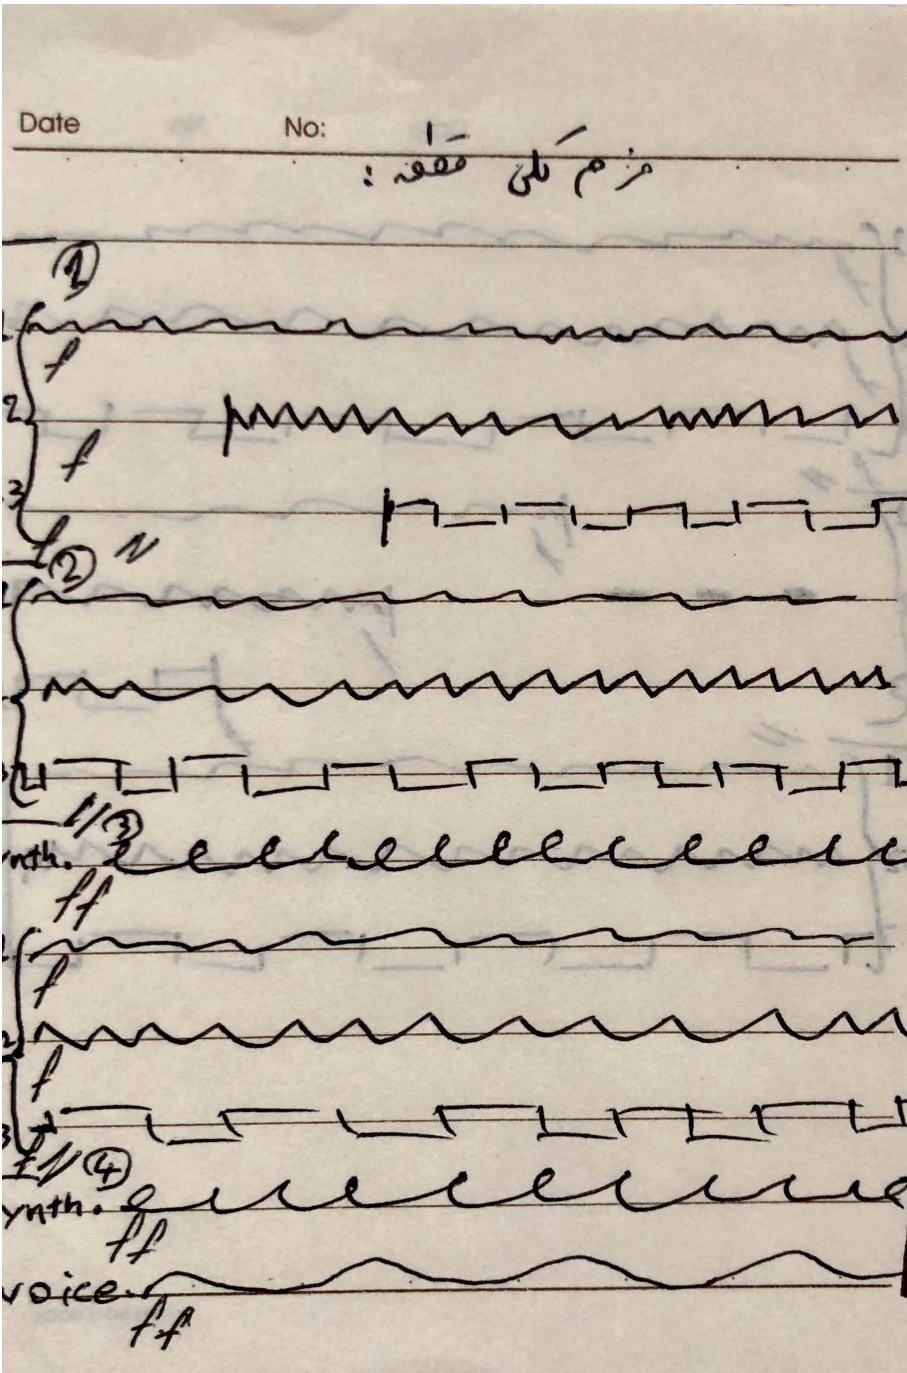 Date No:
فرم کلی قطعه :
①
1
f
2
f
3
f
②
f
③
nth.
ff
f
2
f
3
f
④
ynth.
ff
voice
ff